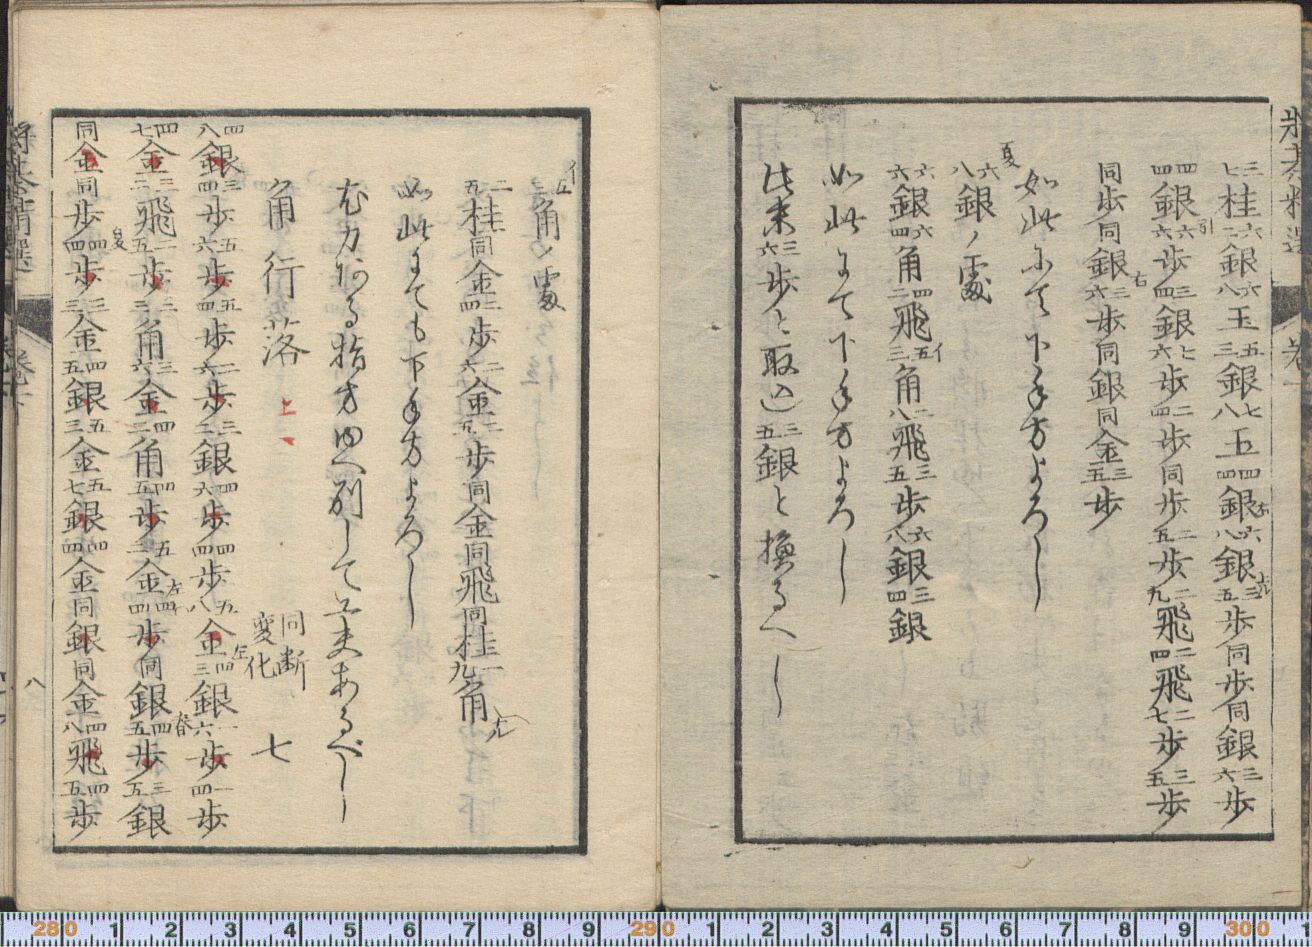 三七桂六二銀六八玉五三銀七八玉四四銀右六八銀左三五歩同歩同銀三六歩
四四銀引六六歩三四銀七六歩二四歩同歩二五歩二九飛二四飛二七歩三五歩
同歩同銀右三六歩同銀同金三五歩
如此にて下手方よろし
夏六八銀ノ處
六六銀六四角四二飛五三角イ二八飛三五歩六八銀三四銀
如此にて下手方よろし
此末三六歩と取込三五銀と換るべし
イ五三角ノ處
二五桂同金三四歩二六金二五歩同金同飛同桂一九角成
如此にても下手方よろし
尤力ある指方ゆへ別して工夫あるべし
角行落 上一 同断変化 七
四八銀三四歩五六歩五四歩二六歩三二銀四六歩四四歩五八金左四三銀一六歩一四歩
四七金三二飛二五歩三三角三六金四二角四五歩五二金左四四歩同銀春四五歩三五銀
同金同歩夏四四歩三三金四五銀五三金五七銀四四金同銀同金四八飛四五歩